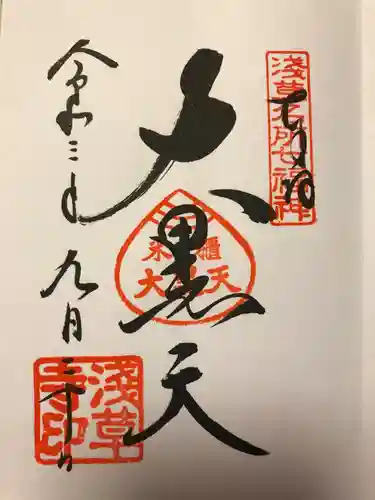 奉拝
淺草名所七福神
大黒天
米櫃
大黒天
令和三年九月二十日
淺草寺印